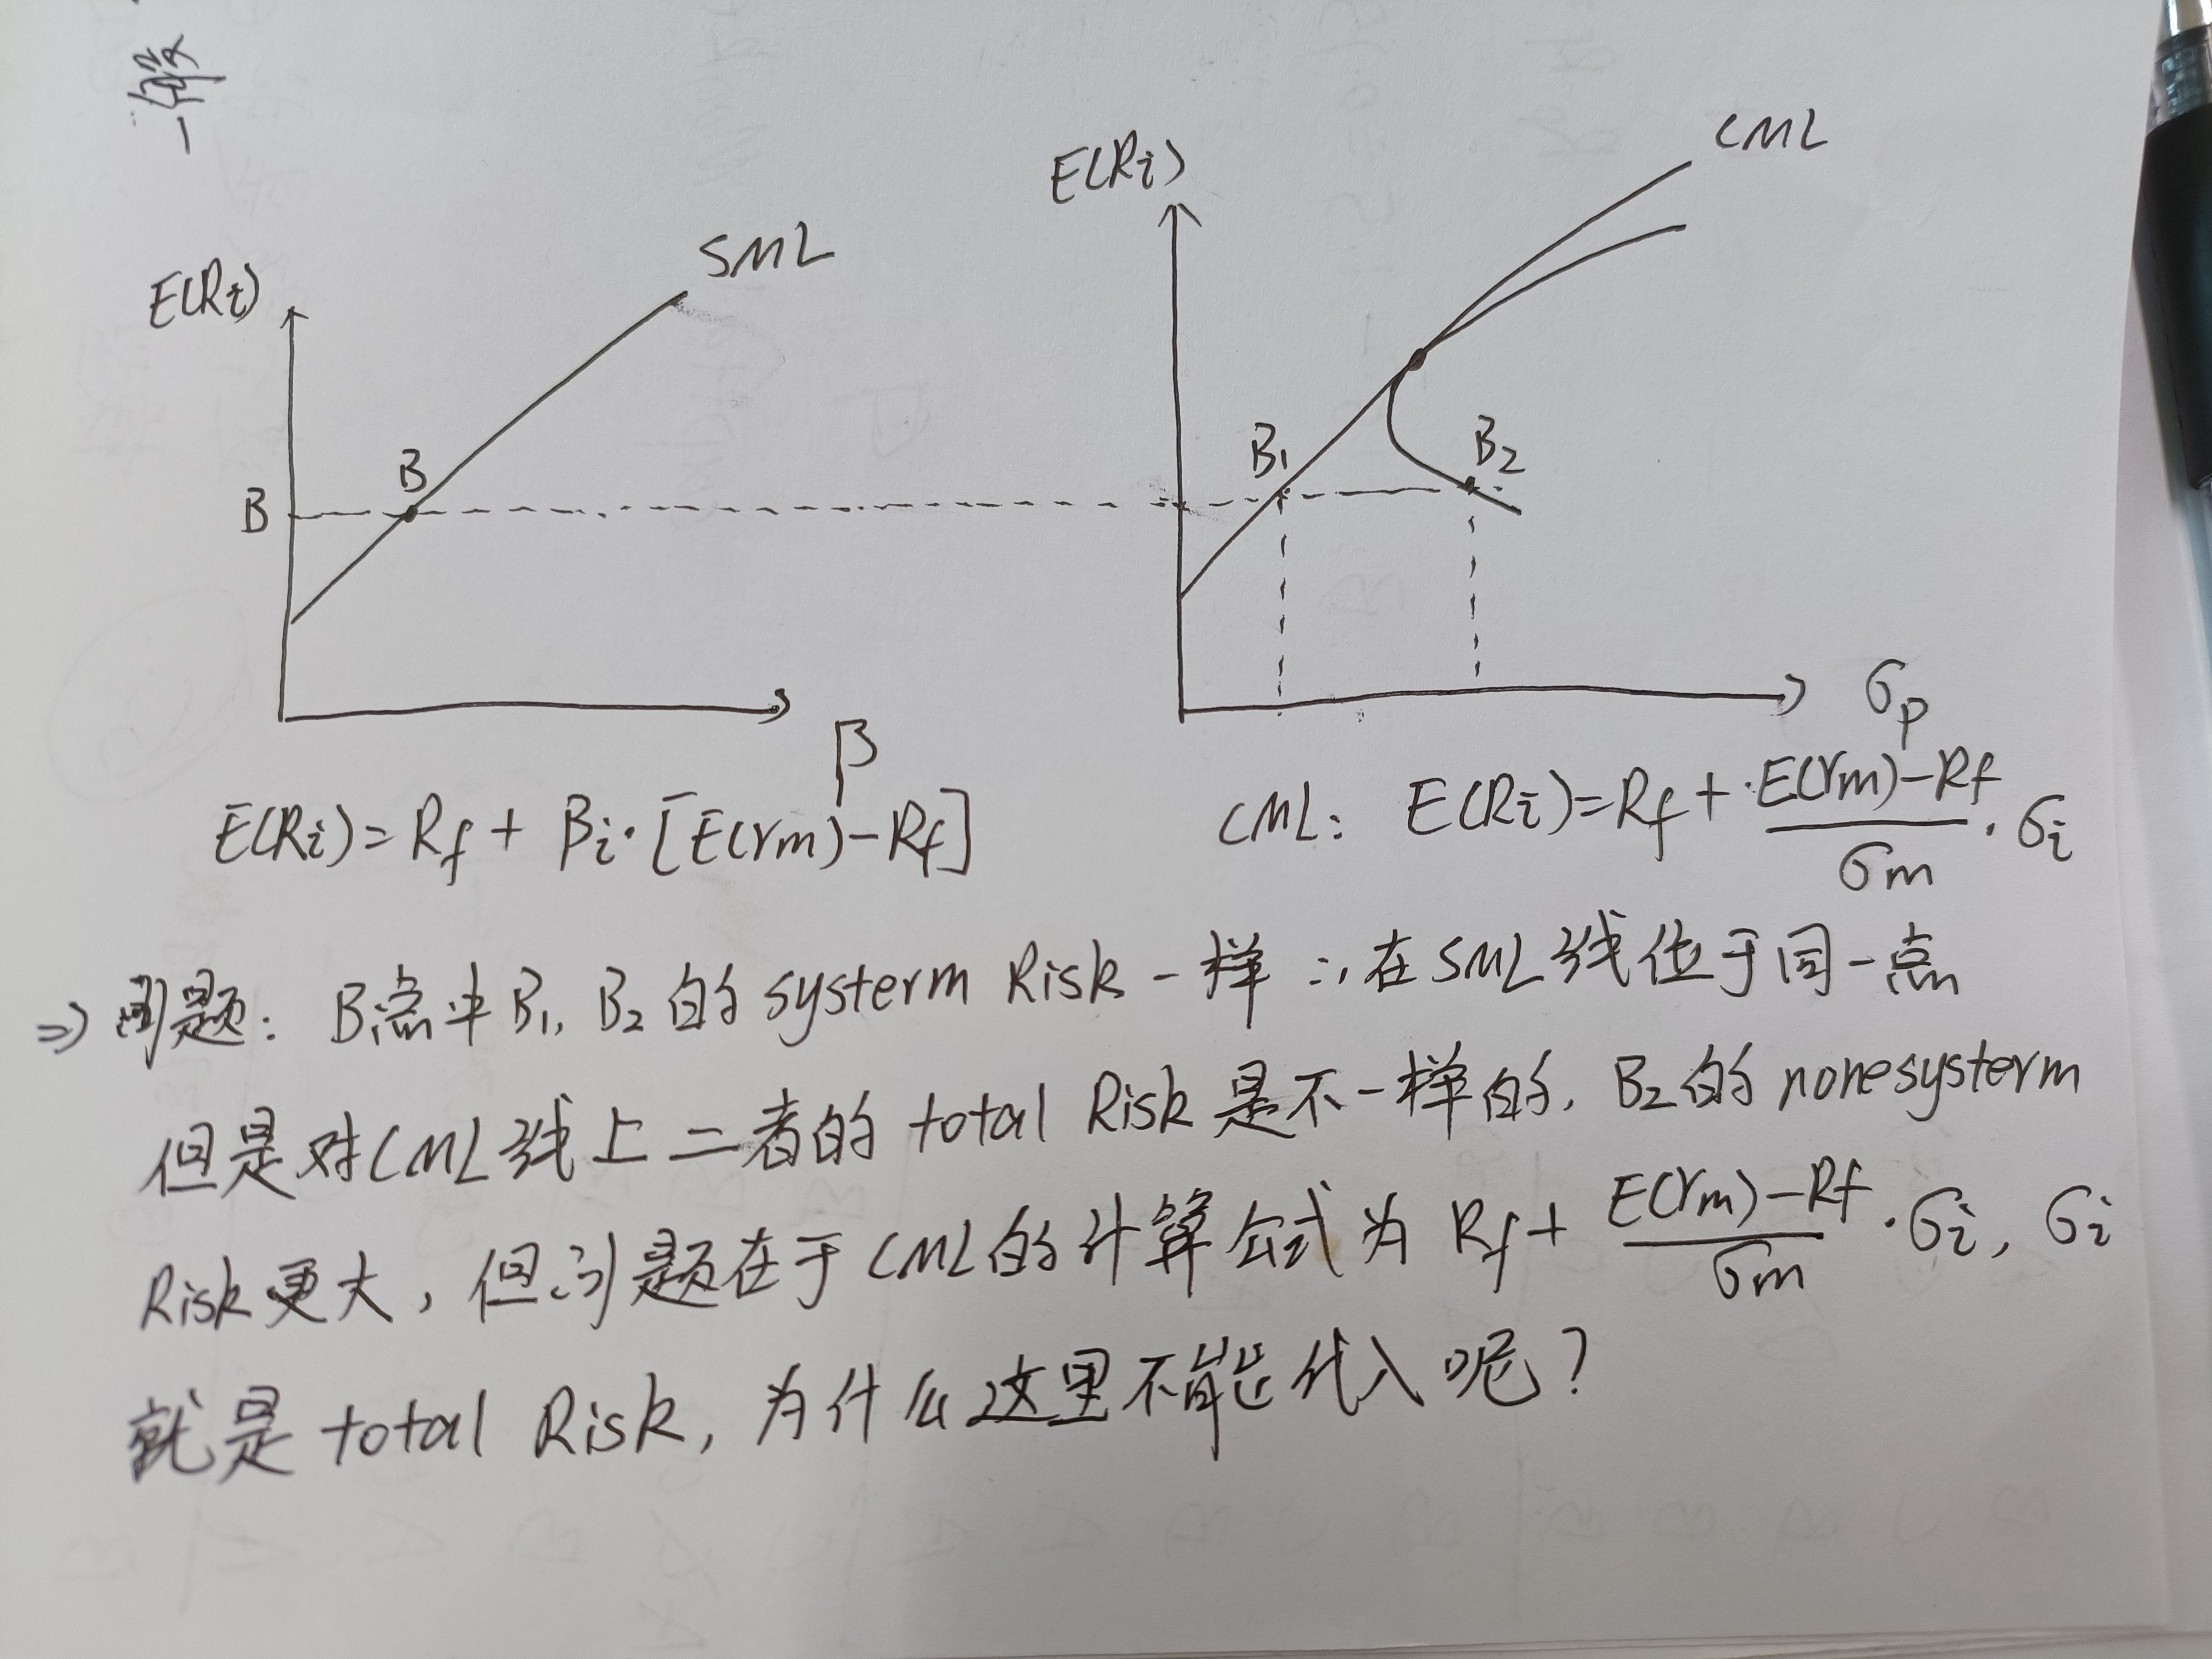 CML
E(Ri)
SML
E(Ri)
B
B1
B2
B
σp
β
E(Ri)=Rf+ βi·[E(rm)-Rf]
CML: E(Ri)=Rf+ E(rm)-Rf/σm ·σi
⇒ 问题: B点中B1, B2的systerm Risk一样 ∴在SML线位于同一点
但是对CML线上二者的total Risk是不一样的, B2的nonesysterm
Risk更大, 但问题在于CML的计算公式为 Rf+ E(rm)-Rf/σm ·σi, σi
就是total Risk, 为什么这里不能代入呢?